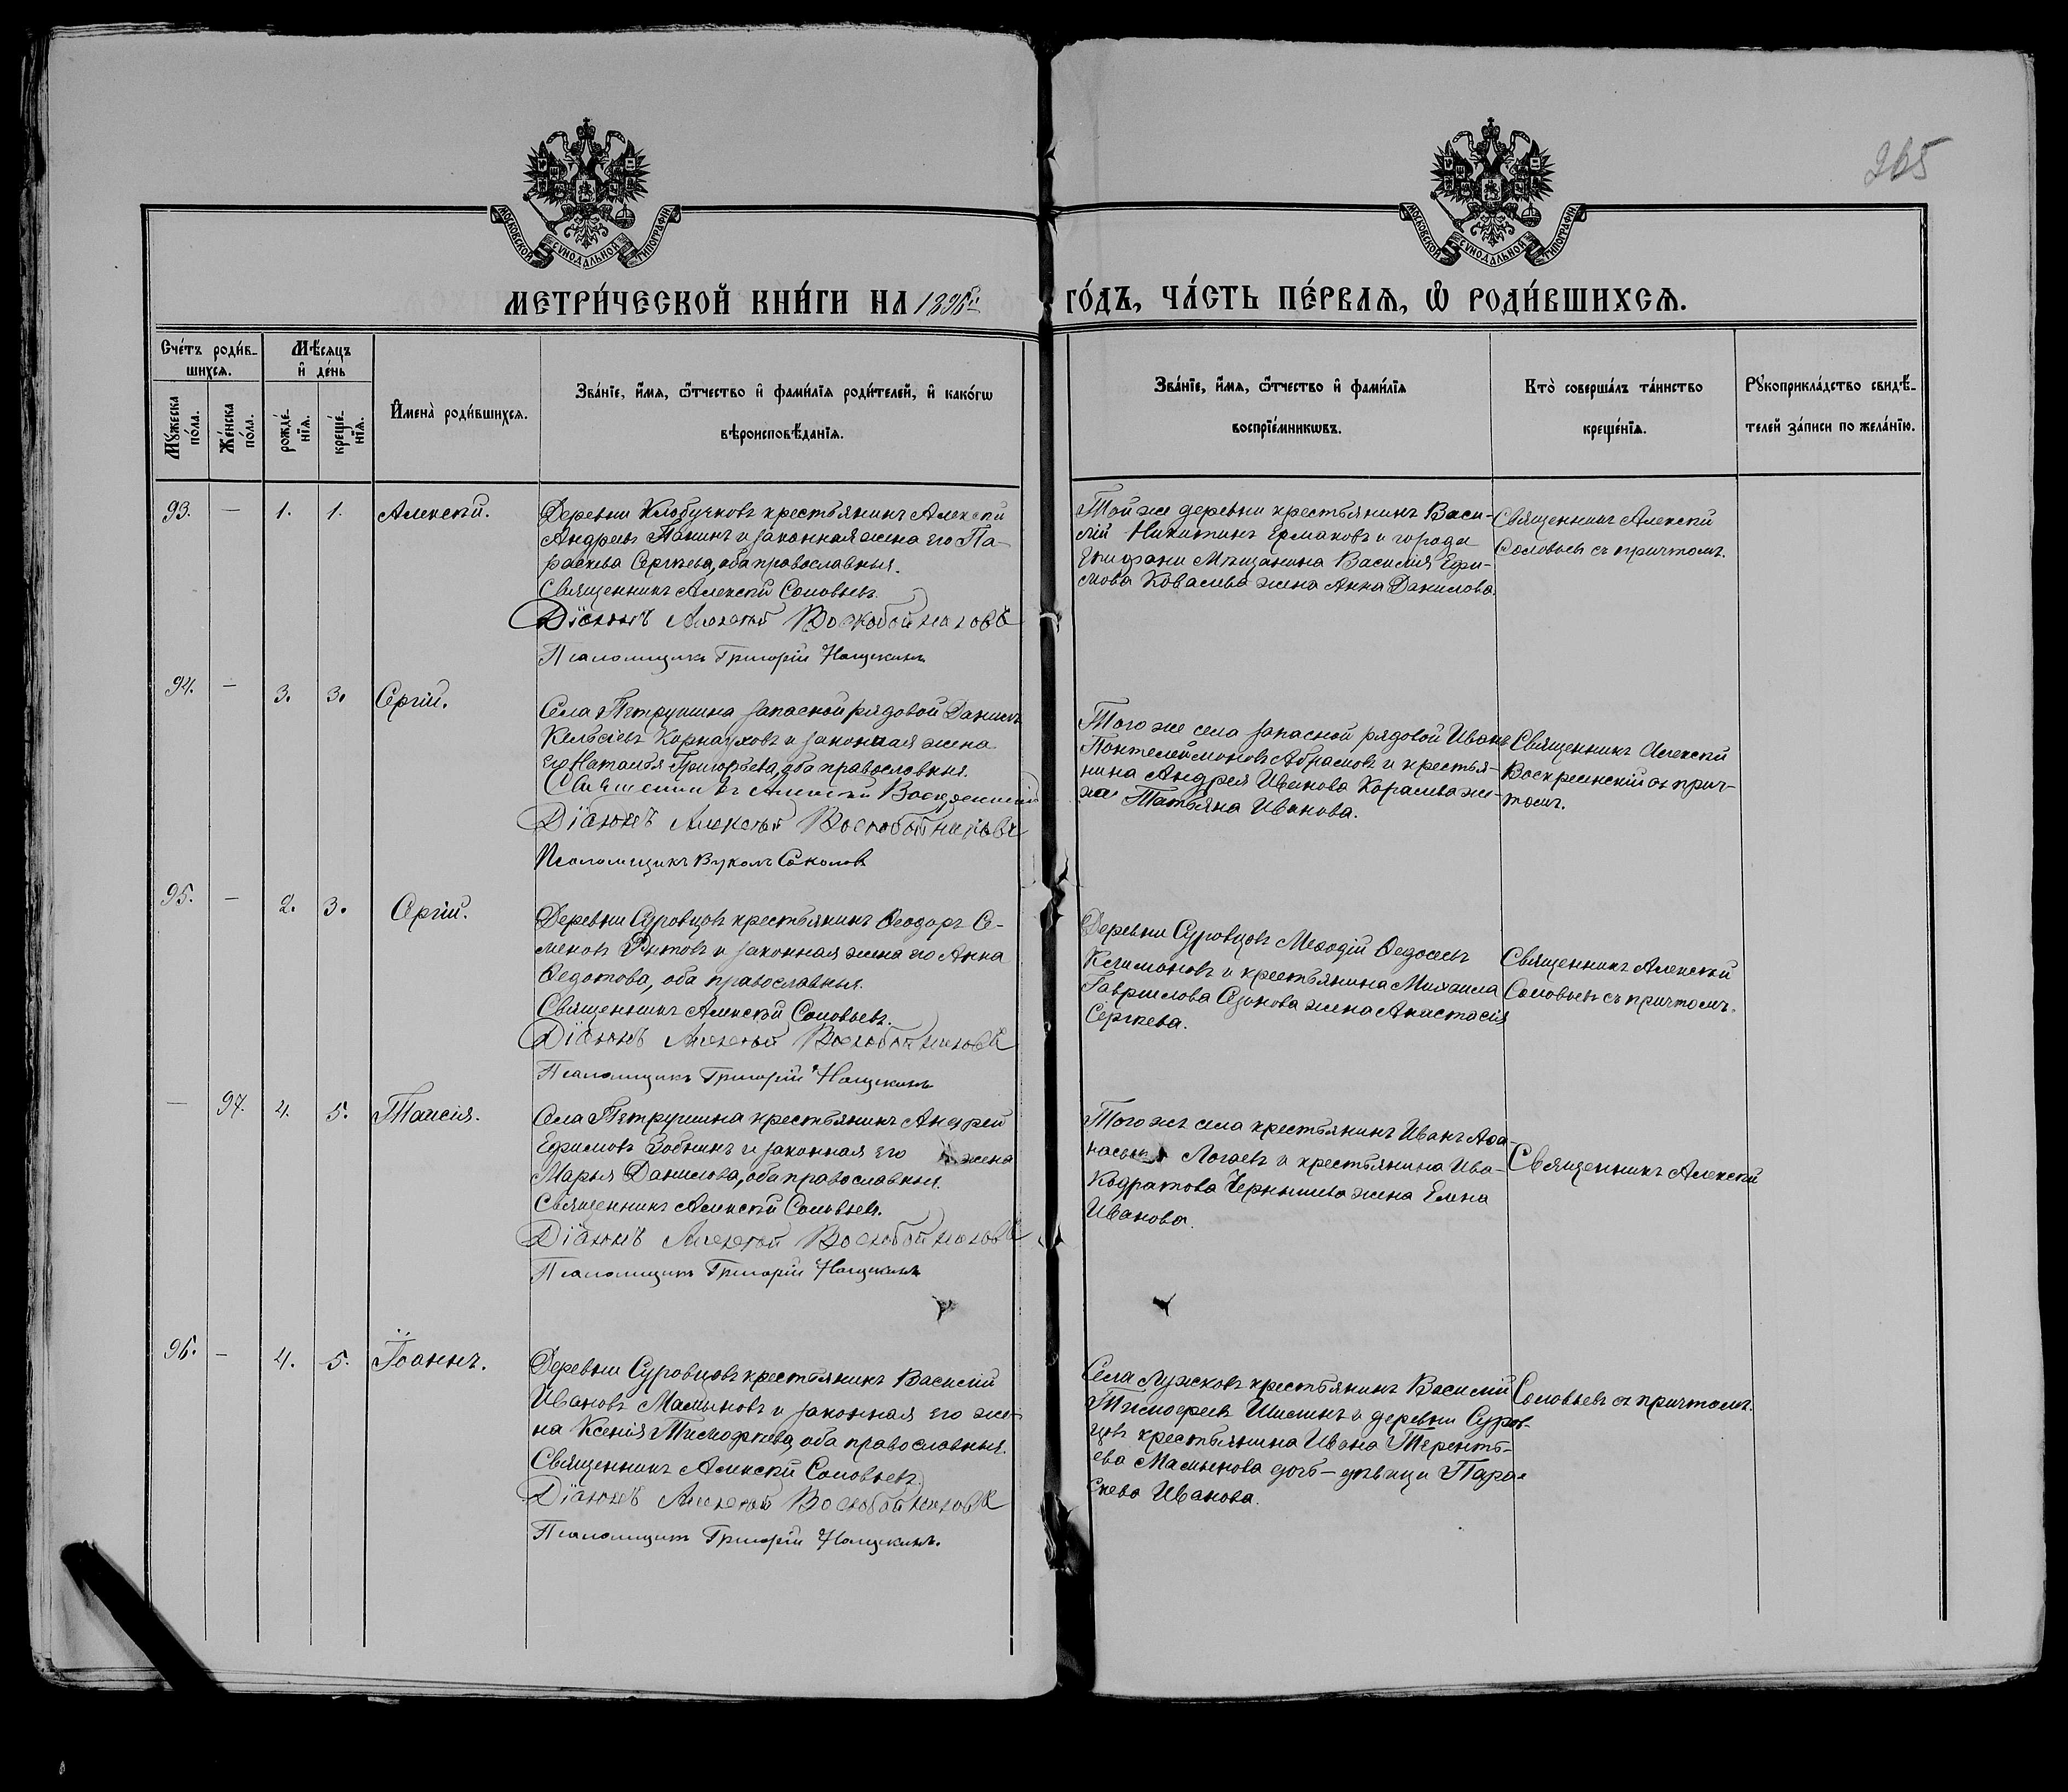 265
МОСКОВСКОЙ СѴНОДАЛЬНОЙ ТИПОГРАФІИ
МОСКОВСКОЙ СѴНОДАЛЬНОЙ ТИПОГРАФІИ
МЕТРИ́ЧЕСКОЙ КНИ́ГИ НА 1896й ГО́ДЪ, ЧА́СТЬ ПЕ́РВАѦ, Ѽ РОДИ́ВШИХСѦ.
Сче́тъ роди́в-
шихсѧ.
Мꙋ́жеска по́ла.
Же́нска по́ла.
Мѣ́сяцъ
и҆ де́нь
рожде́-нїѧ.
креще́-нїѧ.
И҆мена̀ роди́вшихсѧ.
Зва́нїе, и҆́мѧ, ѻ҆́тчество и҆ фами́лїѧ роди́телей, и҆ како́гѡ
вѣроисповѣ́данїѧ.
Зва́нїе, и҆́мѧ, ѻ҆́тчество и҆ фами́лїѧ
воспрїе́мникѡвъ.
Кто̀ соверша́лъ та́инство
креще́нїѧ.
Рꙋкоприкла́дство свидѣ́-
телей за́писи по жела́нїю.
93. — 1. 1. Алексѣй.
Деревни Клобучковъ крестьянинъ Алексѣй
Андреевъ Панинъ и законная жена его Па-
раскева Сергѣева, оба православныя.
Священникъ Алексѣй Соловьевъ.
Дїаконъ Алексѣй Воскобойниковъ
Псаломщикъ Григорій Нащекинъ
Той же деревни крестьянинъ Васи-
лій Никитинъ Ермаковъ и города
Епифани Мѣщанина Василія Ефи-
мова Ковалева жена Анна Данилова.
Священникъ Алексѣй
Соловьевъ съ причтомъ.
94. — 3. 3. Сергій.
Села Петрушина запасной рядовой Даниилъ
Кельсіевъ Корнауховъ и законная жена
его Наталья Григорьева, оба православныя.
Священникъ Алексѣй Воскресенскій
Дїаконъ Алексѣй Воскобойниковъ
Псаломщикъ Вуколъ Соколовъ
Того же села запасной рядовой Иванъ
Пантелеимоновъ Абрамовъ и крестья-
нина Андрея Иванова Королева же-
на Татьяна Иванова.
Священникъ Алексѣй
Воскресенскій съ прич-
томъ.
95. — 2. 3. Сергій.
Деревни Суровцовъ крестьянинъ Ѳеодоръ Се-
меновъ Рытовъ и законная жена его Анна
Ѳедотова, оба православныя.
Священникъ Алексѣй Соловьевъ.
Дїаконъ Алексѣй Воскобойниковъ
Псаломщикъ Григорій Нащекинъ
Деревни Суровцовъ Меѳодій Ѳедосеевъ
и крестьянина Михаила
Гаврилова жена Анастасія
Сергѣева.
Священникъ Алексѣй
Соловьевъ съ причтомъ.
— 97. 4. 5. Таисія.
Села Петрушина крестьянинъ Андрей
Ефимовъ Зобнинъ и законная его жена
Марья Данилова, оба православныя.
Священникъ Алексѣй Соловьевъ.
Дїаконъ Алексѣй Воскобойниковъ
Псаломщикъ Григорій Нащекинъ
Того же села крестьянинъ Иванъ Аѳа-
насьевъ Логаевъ и крестьянина Ива-
Кодратова Чернышева жена Елена
Иванова.
Священникъ Алексѣй
96. — 4. 5. Іоаннъ.
Деревни Суровцовъ крестьянинъ Василій
Ивановъ Малыновъ и законная его же-
на Ксенія Тимофѣева, оба православныя.
Священникъ Алексѣй Соловьевъ.
Дїаконъ Алексѣй Воскобойниковъ
Псаломщикъ Григорій Нащекинъ.
Села Лужковъ крестьянинъ Василій
Тимофеевъ Шишкинъ и деревни Суров-
цовъ крестьянина Ивана Терентъ-
ева Малынова дочь-дѣвица Пара-
скева Иванова.
Соловьевъ съ причтомъ.